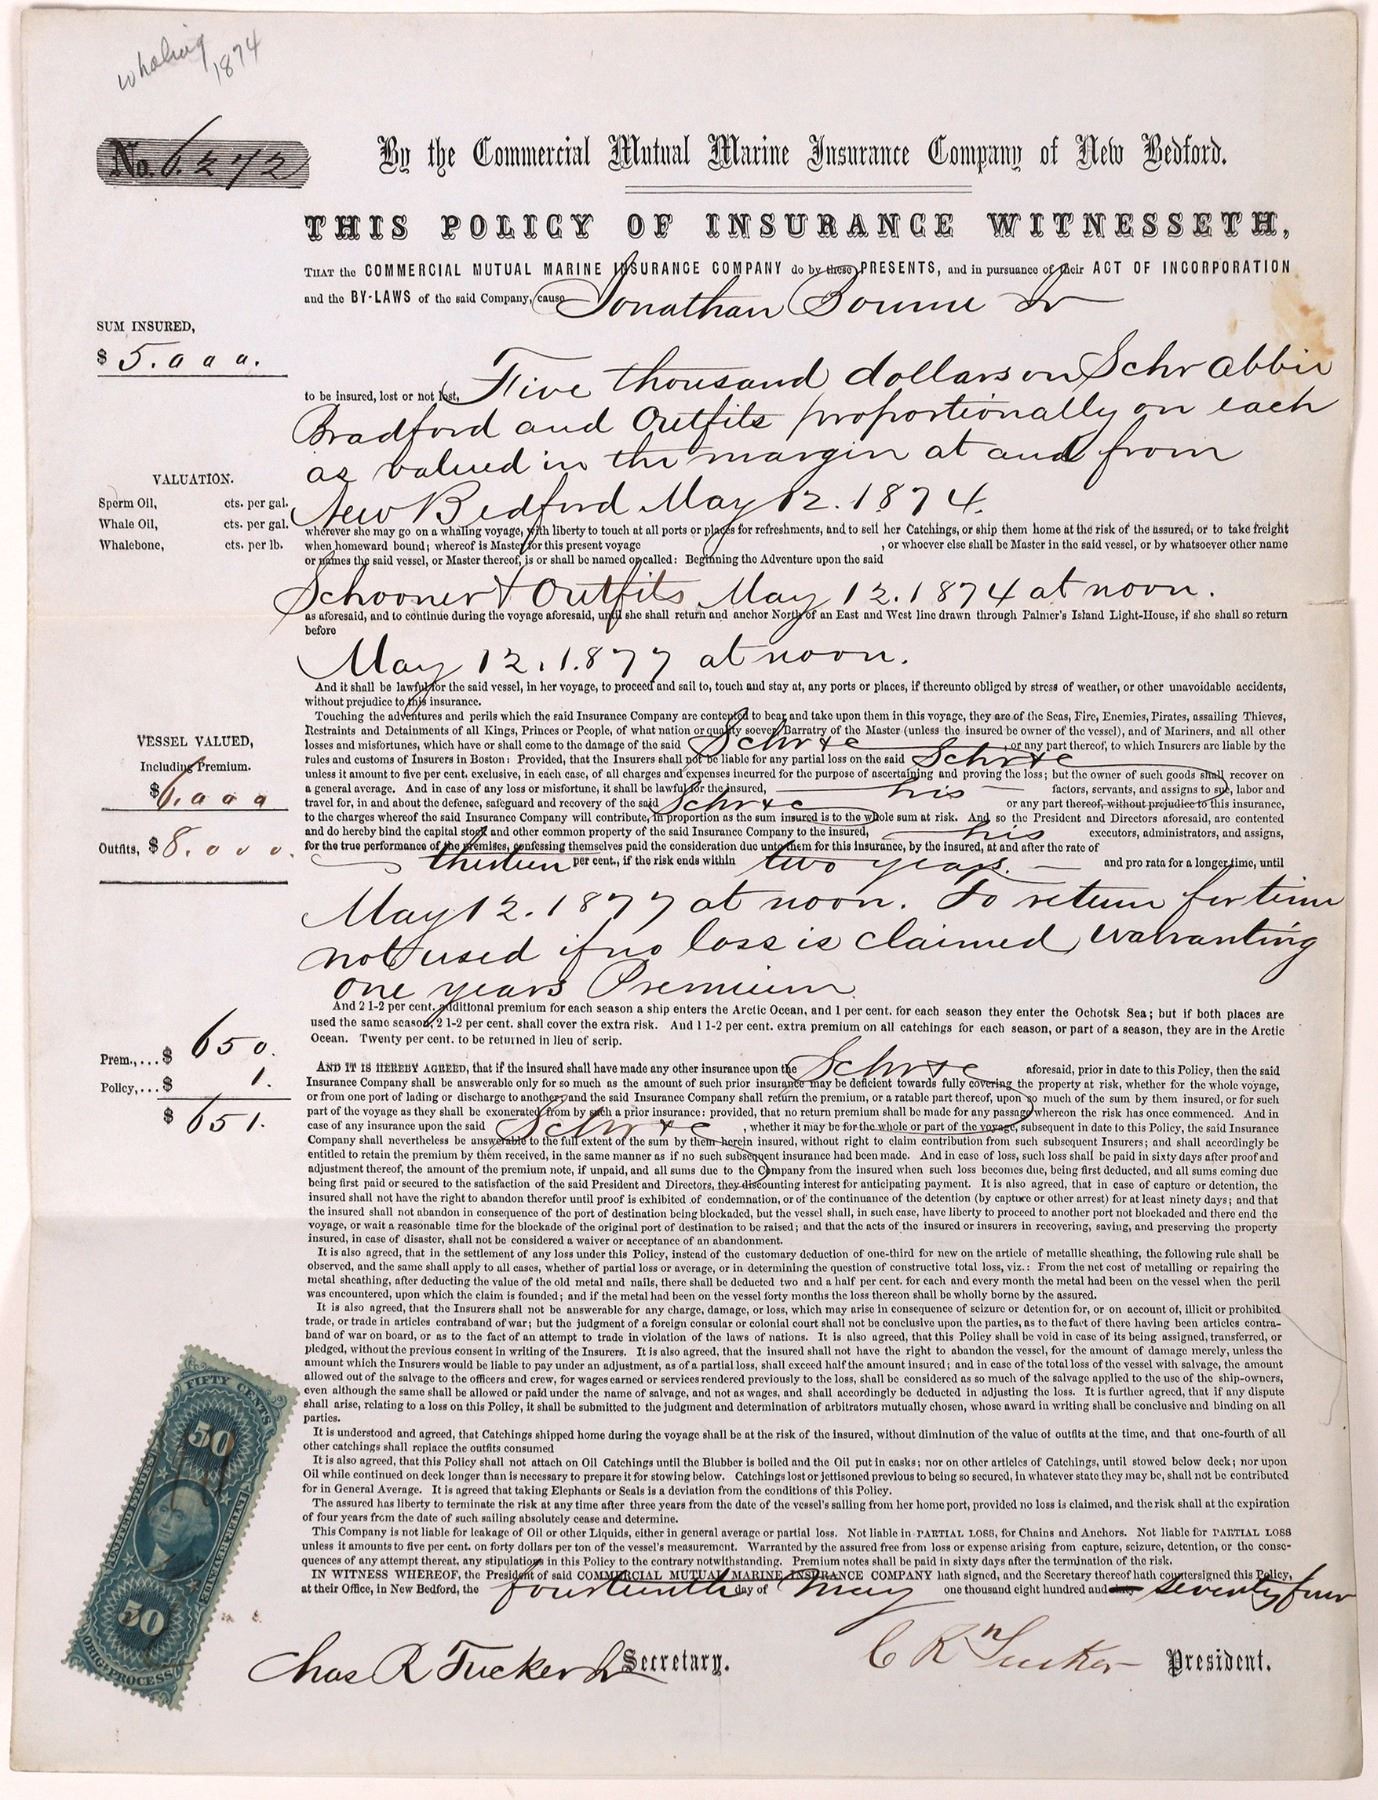 whaling 1874
No. 6272
By the Commercial Mutual Marine Insurance Company of New Bedford.
THIS POLICY OF INSURANCE WITNESSETH,
THAT the COMMERCIAL MUTUAL MARINE INSURANCE COMPANY do by these PRESENTS, and in pursuance of their ACT OF INCORPORATION
and the BY-LAWS of the said Company, cause Jonathan Bourne Jr
SUM INSURED,
$ 5.000.
to be insured, lost or not lost, Five thousand dollars on Schr Abbie
Bradford and Outfits proportionally on each
as valued in the margin at and from
New Bedford May 12. 1874.
VALUATION.
Sperm Oil, cts. per gal.
Whale Oil, cts. per gal.
Whalebone, cts. per lb.
wherever she may go on a whaling voyage, with liberty to touch at all ports or places for refreshments, and to sell her Catchings, or ship them home at the risk of the assured; or to take freight
when homeward bound; whereof is Master for this present voyage , or whoever else shall be Master in the said vessel, or by whatsoever other name
or names the said vessel, or Master thereof, is or shall be named or called: Beginning the Adventure upon the said
Schooner & Outfits May 12. 1874 at noon.
as aforesaid, and to continue during the voyage aforesaid, until she shall return and anchor North of an East and West line drawn through Palmer's Island Light-House, if she shall so return
before
May 12, 1877 at noon.
And it shall be lawful for the said vessel, in her voyage, to proceed and sail to, touch and stay at, any ports or places, if thereunto obliged by stress of weather, or other unavoidable accidents,
without prejudice to this insurance.
Touching the adventures and perils which the said Insurance Company are contented to bear and take upon them in this voyage, they are of the Seas, Fire, Enemies, Pirates, assailing Thieves,
Restraints and Detainments of all Kings, Princes or People, of what nation or quality soever, Barratry of the Master (unless the insured be owner of the vessel), and of Mariners, and all other
losses and misfortunes, which have or shall come to the damage of the said Schr &c , or any part thereof, to which Insurers are liable by the
rules and customs of Insurers in Boston: Provided, that the Insurers shall not be liable for any partial loss on the said Schr &c
unless it amount to five per cent. exclusive, in each case, of all charges and expenses incurred for the purpose of ascertaining and proving the loss; but the owner of such goods shall recover on
a general average. And in case of any loss or misfortune, it shall be lawful for the insured, his factors, servants, and assigns to sue, labor and
travel for, in and about the defence, safeguard and recovery of the said Schr &c or any part thereof, without prejudice to this insurance,
to the charges whereof the said Insurance Company will contribute, in proportion as the sum insured is to the whole sum at risk. And so the President and Directors aforesaid, are contented
and do hereby bind the capital stock and other common property of the said Insurance Company to the insured, his executors, administrators, and assigns,
for the true performance of the premises, confessing themselves paid the consideration due unto them for this insurance, by the insured, at and after the rate of
thirteen per cent., if the risk ends within two years. and pro rata for a longer time, until
VESSEL VALUED,
Including Premium.
$6.000
Outfits, $8.000.
May 12. 1877 at noon. To return for time
not used if no loss is claimed warranting
one years Premium
And 2 1-2 per cent. additional premium for each season a ship enters the Arctic Ocean, and 1 per cent. for each season they enter the Ochotsk Sea; but if both places are
used the same season, 2 1-2 per cent. shall cover the extra risk. And 1 1-2 per cent. extra premium on all catchings for each season, or part of a season, they are in the Arctic
Ocean. Twenty per cent. to be returned in lieu of scrip.
Prem.,... $ 650.
Policy,... $ 1.
$ 651.
AND IT IS HEREBY AGREED, that if the insured shall have made any other insurance upon the Schr &c aforesaid, prior in date to this Policy, then the said
Insurance Company shall be answerable only for so much as the amount of such prior insurance may be deficient towards fully covering the property at risk, whether for the whole voyage,
or from one port of lading or discharge to another; and the said Insurance Company shall return the premium, or a ratable part thereof, upon so much of the sum by them insured, or for such
part of the voyage as they shall be exonerated from by such a prior insurance: provided, that no return premium shall be made for any passage whereon the risk has once commenced. And in
case of any insurance upon the said Schr &c , whether it may be for the whole or part of the voyage, subsequent in date to this Policy, the said Insurance
Company shall nevertheless be answerable to the full extent of the sum by them herein insured, without right to claim contribution from such subsequent Insurers; and shall accordingly be
entitled to retain the premium by them received, in the same manner as if no such subsequent insurance had been made. And in case of loss, such loss shall be paid in sixty days after proof and
adjustment thereof, the amount of the premium note, if unpaid, and all sums due to the Company from the insured when such loss becomes due, being first deducted, and all sums coming due
being first paid or secured to the satisfaction of the said President and Directors, they discounting interest for anticipating payment. It is also agreed, that in case of capture or detention, the
insured shall not have the right to abandon therefor until proof is exhibited of condemnation, or of the continuance of the detention (by capture or other arrest) for at least ninety days; and that
the insured shall not abandon in consequence of the port of destination being blockaded, but the vessel shall, in such case, have liberty to proceed to another port not blockaded and there end the
voyage, or wait a reasonable time for the blockade of the original port of destination to be raised; and that the acts of the insured or insurers in recovering, saving, and preserving the property
insured, in case of disaster, shall not be considered a waiver or acceptance of an abandonment.
It is also agreed, that in the settlement of any loss under this Policy, instead of the customary deduction of one-third for new on the article of metallic sheathing, the following rule shall be
observed, and the same shall apply to all cases, whether of partial loss or average, or in determining the question of constructive total loss, viz.: From the net cost of metalling or repairing the
metal sheathing, after deducting the value of the old metal and nails, there shall be deducted two and a half per cent. for each and every month the metal had been on the vessel when the peril
was encountered, upon which the claim is founded; and if the metal had been on the vessel forty months the loss thereon shall be wholly borne by the assured.
It is also agreed, that the Insurers shall not be answerable for any charge, damage, or loss, which may arise in consequence of seizure or detention for, or on account of, illicit or prohibited
trade, or trade in articles contraband of war; but the judgment of a foreign consular or colonial court shall not be conclusive upon the parties, as to the fact of there having been articles contra-
band of war on board, or as to the fact of an attempt to trade in violation of the laws of nations. It is also agreed, that this Policy shall be void in case of its being assigned, transferred, or
pledged, without the previous consent in writing of the Insurers. It is also agreed, that the insured shall not have the right to abandon the vessel, for the amount of damage merely, unless the
amount which the Insurers would be liable to pay under an adjustment, as of a partial loss, shall exceed half the amount insured; and in case of the total loss of the vessel with salvage, the amount
allowed out of the salvage to the officers and crew, for wages earned or services rendered previously to the loss, shall be considered as so much of the salvage applied to the use of the ship-owners,
even although the same shall be allowed or paid under the name of salvage, and not as wages, and shall accordingly be deducted in adjusting the loss. It is further agreed, that if any dispute
shall arise, relating to a loss on this Policy, it shall be submitted to the judgment and determination of arbitrators mutually chosen, whose award in writing shall be conclusive and binding on all
parties.
It is understood and agreed, that Catchings shipped home during the voyage shall be at the risk of the insured, without diminution of the value of outfits at the time, and that one-fourth of all
other catchings shall replace the outfits consumed
It is also agreed, that this Policy shall not attach on Oil Catchings until the Blubber is boiled and the Oil put in casks; nor on other articles of Catchings, until stowed below deck; nor upon
Oil while continued on deck longer than is necessary to prepare it for stowing below. Catchings lost or jettisoned previous to being so secured, in whatever state they may be, shall not be contributed
for in General Average. It is agreed that taking Elephants or Seals is a deviation from the conditions of this Policy.
The assured has liberty to terminate the risk at any time after three years from the date of the vessel's sailing from her home port, provided no loss is claimed, and the risk shall at the expiration
of four years from the date of such sailing absolutely cease and determine.
This Company is not liable for leakage of Oil or other Liquids, either in general average or partial loss. Not liable in PARTIAL LOSS, for Chains and Anchors. Not liable for PARTIAL LOSS
unless it amounts to five per cent. on forty dollars per ton of the vessel's measurement. Warranted by the assured free from loss or expense arising from capture, seizure, detention, or the conse-
quences of any attempt thereat, any stipulations in this Policy to the contrary notwithstanding. Premium notes shall be paid in sixty days after the termination of the risk.
IN WITNESS WHEREOF, the President of said COMMERCIAL MUTUAL MARINE INSURANCE COMPANY hath signed, and the Secretary thereof hath countersigned this Policy,
at their Office, in New Bedford, the fourteenth day of May one thousand eight hundred and seventy four
Chas R Tucker Jr Secretary. C R Tucker President.
FIFTY CENTS
50
UNITED STATES
INTER. REVENUE
50
ORIG. PROCESS